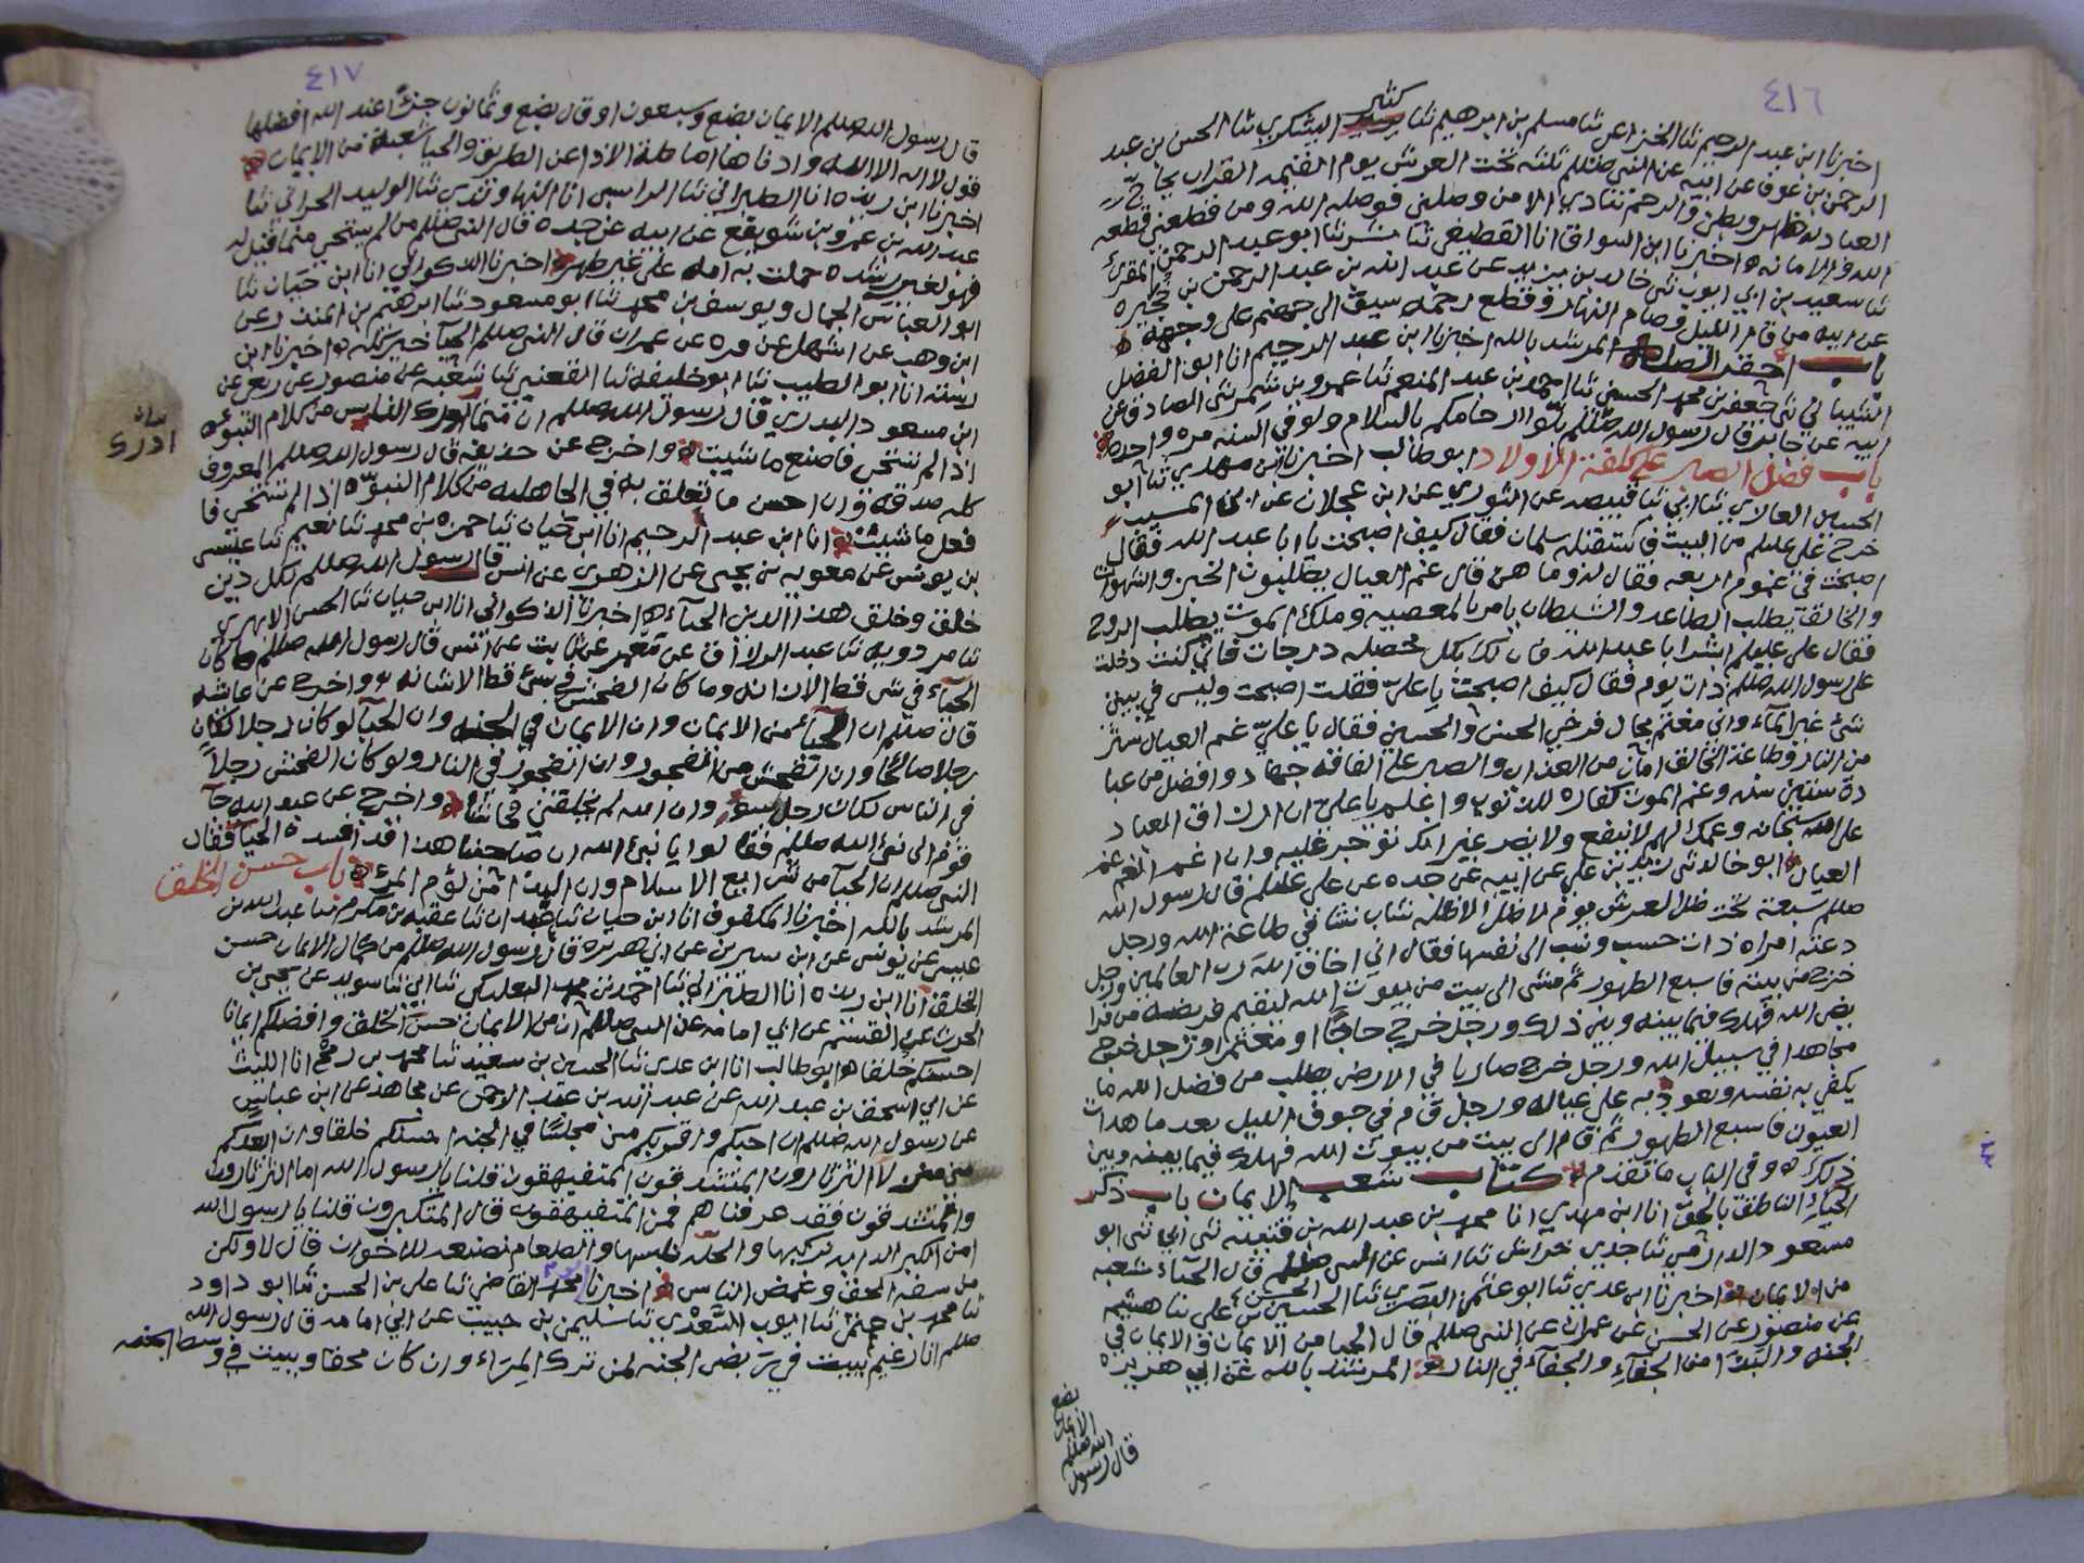 ٤١٦
كثير
اخبرنا ابن عبد الرحيم ثنا الخزاعي ثنا مسلم بن ابرهيم ثنا اليشكري ثنا الحسن بن عبد
الرحمن بن عوف عن ابيه عن النبي صللم ثلثه تحت العرش يوم القيمه القران يحاج
العباد له ظهر وبطن والرحم تنادي الا من وصلني فوصله الله ومن قطعني قطعه
الله والامانه اخبرنا ابن السواق انا القطيعي ثنا بشر ثنا ابو عبد الرحمن المقرئ
ثنا سعيد بن ابي ايوب ثنى خالد بن يزيد عن عبد الله بن عبد الرحمن بن حجيره
عن ابيه من قام الليل وصام النهار وقطع رحمه سيق الى جهنم على وجهه
باب المرشد بالله اخبرنا ابن عبد الرحيم انا ابو الفضل
الشيباني ثنى جعفر بن محمد الحسني ثنا احمد بن عبد المنعم ثنا عمرو بن شمر ثنى الصادق عن
ابيه عن جابر قال رسول الله صللم بلوا ارحامكم بالسلام ولو في السنه مره واحده
باب فضل الصبر على كلفة الاولاد ابو طالب اخبرنا ابن مهدي ثنا ابو
الحسين العالاي ثنا ابي ثنا قبيصه عن الثوري عن ابن عجلان عن ابن المسيب
خرج علي عليلم من البيت فاستقبله سلمان فقال كيف اصبحت يا ابا عبد الله فقال
اصبحت في غموم اربعه فقال له وما هن قال غم العيال يطلبون الخبز والشهوات
والخالق يطلب الطاعه والشيطان يامر بالمعصيه وملك الموت يطلب الروح
فقال علي عليلم ابشر ابا عبد الله فان لك بكل خصله درجات فاني كنت دخلت
على رسول الله صللم ذات يوم فقال كيف اصبحت يا علي فقلت اصبحت وليس في بيتي
شئ غير الماء واني مغتم بحال فرخي الحسن والحسين فقال يا علي غم العيال ستر
من النار وطاعة الخالق امان من العذاب والصبر على الفاقه جهاد وافضل من عبا
دة ستين سنه وغم الموت كفاره للذنوب واعلم يا علي ان ارزاق العباد
على الله سبحانه وغمك لهم لا ينفع ولا يضر غير انك توجر عليه وان اغم الغم غم
العيال ابو خالد ثنى زيد بن علي عن ابيه عن جده عن علي عليلم قال رسول الله
صللم سبعة تحت ظل العرش يوم لا ظل الا ظله شاب نشا في طاعة الله ورجل
دعته امراه ذات حسب ونسب الى نفسها فقال اني اخاف الله رب العالمين ورجل
خرج من بيته فاسبغ الطهور ثم مشى الى بيت من بيوت الله ليقيم فريضه من فرا
يض الله فهلك فيما بينه وبين ذلك ورجل خرج حاجًا او معتمرا ورجل خرج
مجاهدا في سبيل الله ورجل خرج ضاربا في الارض يطلب من فضل الله ما
يكفي به نفسه ويعود به على عياله ورجل قام في جوف الليل بعد ما هدات
العيون فاسبغ الطهور ثم قام الى بيت من بيوت الله فهلك فيما بينه وبين
ذلك وفي الباب ما تقدم كتاب شعب الايمان باب ذكر
الحياء الناطق بالحق انا ابن مهدي انا محمد بن عبد الله بن قتيبه ثنى ابي ثنى ابو
مسعود الدارمي ثنا جدي خراش ثنا انس عن النبي صللم قال الحياء شعبه
من الايمان اخبرنا ابن عدي ثنا ابو عثمن البصري ثنا الحسين بن علي ثنا هشيم
عن منصور عن الحسن عن عمران عن النبي صللم قال الحيا من الايمان والايمان في
الجنه والبذا من الجفاء والجفاء في النار المرشد بالله عن ابي هريره
قال رسول
الله صللم
الايمان
بضع
٤١٧
قال رسول الله صللم الايمان بضع وسبعون او قال بضع وثمانون جزءًا عند الله افضلها
قول لا اله الا الله وادناها اماطة الاذا عن الطريق والحيا شعبة من الايمان
اخبرنا ابن ريذه انا الطبراني ثنا الراسبي انا النهاوندي ثنا الوليد الحراني ثنا
عبد الله بن عمرو بن شويفع عن ابيه عن جده قال النبي صللم من لم يستحي مما قيل له
فهو لغير رشده حملت به امه على غير طهر اخبرنا الذكواني انا ابن حيان ثنا
ابو العباس الجمال ويوسف بن محمد ثنا ابو مسعود ثنا ابرهيم بن المنذر عن
ابن وهب عن اشهل عن مره عن عمران قال النبي صللم الحيا خير كله اخبرنا ابن
رسته انا ابو الطيب ثنا ابو خليفه ثنا القعنبي ثنا شعبه عن منصور عن ربعي عن
ابن مسعود البدري قال رسول الله صللم ان مما ادرك الناس من كلام النبوه
بيان
ادرك
اذا لم تستحي فاصنع ما شيت واخرج عن حذيفه قال رسول الله صللم المعروف
كله صدقه وان احسن ما تعلق به في الجاهليه من كلام النبوه اذا لم تستحي فا
فعل ما شيت انا ابن عبد الرحيم انا ابن حيان ثنا حمزه بن محمد ثنا نعيم ثنا عيسى
بن يونس عن معويه بن يحيى عن الزهري عن انس قال رسول الله صللم لكل دين
خلق وخلق هذا الدين الحياء اخبرنا الذكواني انا ابن حيان ثنا الحسن الابهري
ثنا مردويه ثنا عبد الرزاق عن معمر عن ثابت عن انس قال رسول الله صللم ما كان
الحياء في شي قط الا زانه وما كان الفحش في شئ قط الا شانه واخرج عن عائشه
قال صللم ان الحياء من الايمان وان الايمان في الجنه وان الحيا لو كان رجلا لكان
رجلا صالحًا وان الفحش من الفجور وان الفجور في النار ولو كان الفحش رجلًا
في الناس لكان رجل سوء وان الله لم يخلقني فحاشا واخرج عن عبد الله جآ
قوم الى نبي الله صللم فقالوا يا نبي الله ان صاحبنا هذا قد افسده الحيا فقال
النبي صللم ان الحيا من شرايع الاسلام وان البذا من لؤم المرء باب حسن الخلق
المرشد بالله اخبرنا المكفوف انا ابن حيان ثنا عبدان ثنا عقبه بن مكرم ثنا عبد الله بن
عيسى عن يونس عن ابن سيرين عن ابي هريره قال رسول الله صللم من كمال الايمان حسن
الخلق انا ابن ريذه انا الطبراني ثنا احمد بن محمد البعلبكي ثنا ابي ثنا سويد عن يحيى بن
الحرث عن القسم عن ابي امامه عن النبي صللم ان من الايمان حسن الخلق وافضلكم ايمانا
احسنكم خلقا ابو طالب انا ابن عدي ثنا الحسين بن سعيد ثنا محمد بن رمح انا الليث
عن ابي اسحق بن عبد الله عن عبد الله بن عبد الرحمن عن مجاهد عن ابن عباس
عن رسول الله صللم ان احبكم واقربكم مني مجلسًا في الجنه احسنكم خلقا وان ابعدكم
مني الثرثارون المتشدقون المتفيهقون قلنا يا رسول الله اما الثرثارون
والمتشدقون فقد عرفناهم فمن المتفيهقون قال المتكبرون قلنا يا رسول الله
امن الكبر الدابه نركبها والحله نلبسها والطعام نصنعه للاخوان قال لا ولكن
من سفه الحق وغمض الناس اخبرنا القاضي ثنا علي بن الحسن ثنا ابو داود
ثنا محمد بن عثمن ثنا ايوب السعدي ثنا سليمن بن حبيب عن ابي امامه قال رسول الله
صللم انا زعيم ببيت في ربض الجنه لمن ترك المراء وان كان محقا وببيت في وسط الجنه